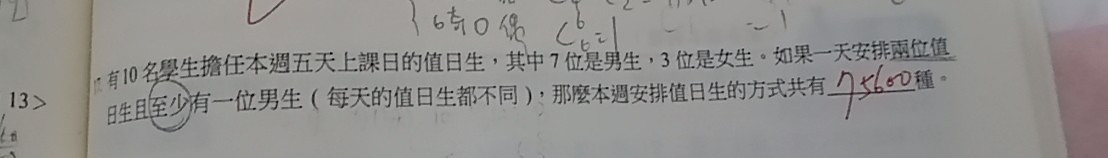 6奇0偶 C⁶₆=1 =1
有10名學生擔任本週五天上課日的值日生，其中7位是男生，3位是女生。如果一天安排兩位值
13> 日生且至少有一位男生（每天的值日生都不同），那麼本週安排值日生的方式共有 75600 種。